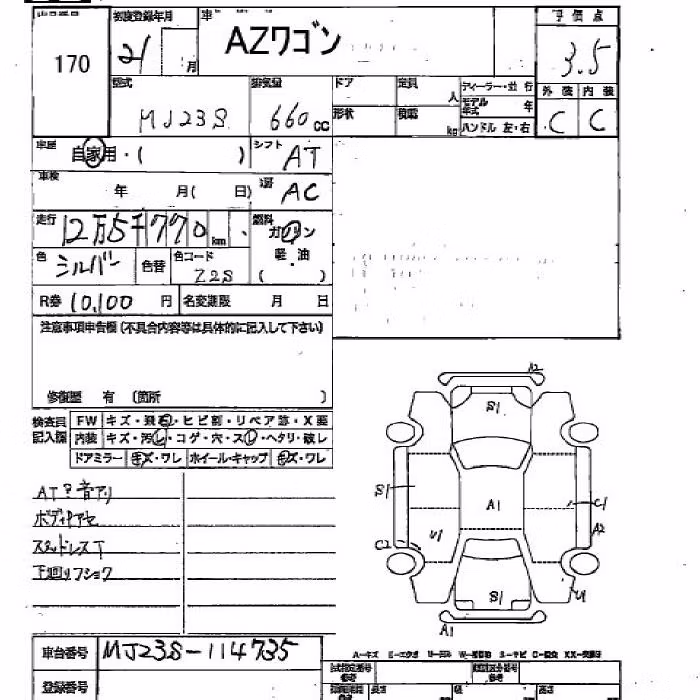 170
初度登録年月
21 月
車
AZワゴン
評価点
3.5
型式
MJ23S
排気量
660cc
ドア
定員 人
形状
積載 kg
ディーラー・並行
モデル年式 年
ハンドル 左・右
外装 内装
C C
車歴
自家用・( )
シフト AT
車検
年 月( 日)
AC
走行
12万5千770km
燃料
ガソリン
軽・油
( )
色
シルバー
色替
色コード
Z2S
R券 10,100 円
名変期限 月 日
注意事項申告欄(不具合内容等は具体的に記入して下さい)
修復歴 有 (箇所 )
検査員記入欄
FW キズ・飛石・ヒビ割・リペア跡・X要
内装 キズ・汚レ・コゲ・穴・スレ・ヘタリ・破レ
ドアミラー キズ・ワレ ホイール・キャップ キズ・ワレ
ボディヤセ
スタッドレスT
下廻りフショク
A2
S1
S1
A1
C1
A2
U1
C2
S1
U1
A1
車台番号 MJ23S-114735
登録番号